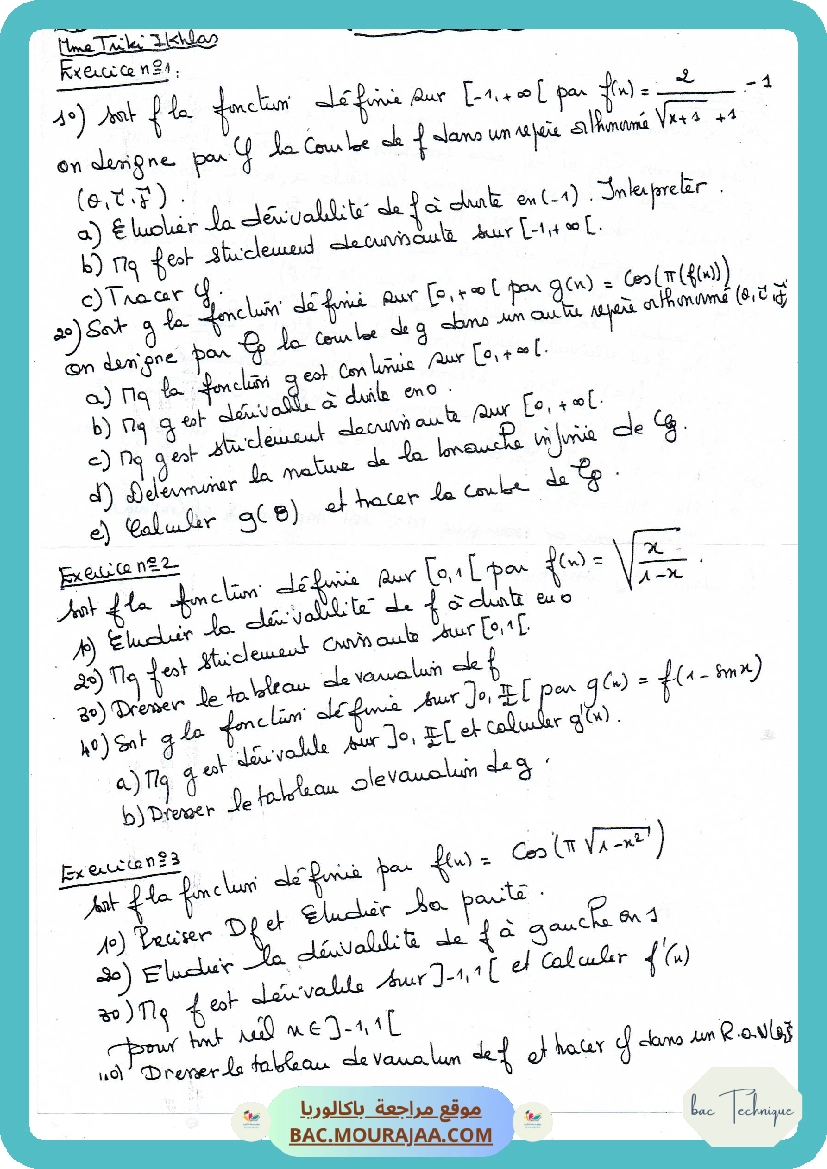 Mme Triki Ikhlas
Exercice n°1:
1°) Soit f la fonction définie sur [-1,+∞[ par f(x) = 2/(√(x+1) +1) - 1
on designe par 𝒞 la courbe de f dans un repère orthonormé
(O, i⃗, j⃗).
a) Etudier la dérivabilité de f à droite en (-1). Interpreter.
b) Mq f est strictement decroissante sur [-1,+∞[.
c) Tracer 𝒞.
2°) Soit g la fonction définie sur [0,+∞[ par g(x) = Cos(π(f(x)))
on designe par 𝒞g la courbe de g dans un autre repère orthonormé (O, i⃗, j⃗)
a) Mq la fonction g est continue sur [0,+∞[.
b) Mq g est dérivable à droite en 0.
c) Mq g est strictement decroissante sur [0,+∞[.
d) Déterminer la nature de la branche infinie de 𝒞g.
e) Calculer g(8) et tracer la courbe de 𝒞g.
Exercice n°2
Soit f la fonction définie sur [0,1[ par f(x) = √(x/(1-x)).
1°) Etudier la dérivabilité de f à droite en 0
2°) Mq f est strictement croissante sur [0,1[.
3°) Dresser le tableau de variation de f
4°) Soit g la fonction définie sur ]0, π/2[ par g(x) = f(1-sinx)
a) Mq g est dérivable sur ]0, π/2[ et calculer g'(x).
b) Dresser le tableau de variation de g.
Exercice n°3
Soit f la fonction définie par f(x) = Cos(π√(1-x²))
1°) Preciser Df et Etudier sa parité.
2°) Etudier la dérivabilité de f à gauche en 1
3°) Mq f est dérivable sur ]-1,1[ et Calculer f'(x)
pour tout réel x ∈ ]-1,1[
4°) Dresser le tableau de variation de f et tracer 𝒞f dans un R.O.N
موقع مراجعة باكالوريا
BAC.MOURAJAA.COM
bac Technique